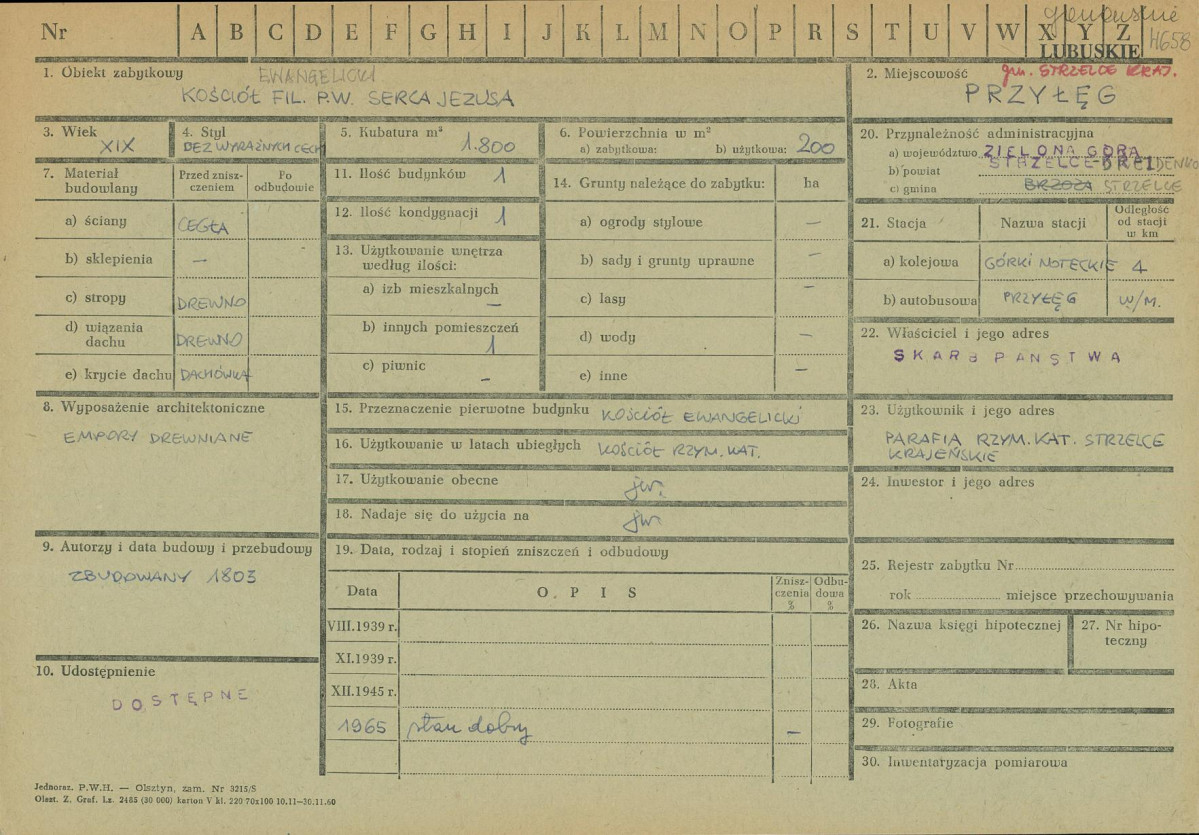 Nr A B C D E F G H I J K L M N O P R S T U V W X Y Z
LUBUSKIE
4658
1. Obiekt zabytkowy EWANGELICKI
KOŚCIÓŁ FIL. P.W. SERCA JEZUSA
2. Miejscowość gm. STRZELCE KRAJ.
PRZYŁĘG
3. Wiek
XIX
4. Styl
BEZ WYRAŹNYCH CECH
5. Kubatura m³
1.800
6. Powierzchnia w m²
a) zabytkowa: b) użytkowa: 200
7. Materiał budowlany
Przed zniszczeniem
Po odbudowie
a) ściany CEGŁA
b) sklepienia —
c) stropy DREWNO
d) wiązania dachu DREWNO
e) krycie dachu DACHÓWKA
8. Wyposażenie architektoniczne
EMPORY DREWNIANE
9. Autorzy i data budowy i przebudowy
ZBUDOWANY 1803
10. Udostępnienie
DOSTĘPNE
11. Ilość budynków 1
12. Ilość kondygnacji 1
13. Użytkowanie wnętrza
według ilości:
a) izb mieszkalnych
—
b) innych pomieszczeń
1
c) piwnic
—
14. Grunty należące do zabytku: ha
a) ogrody stylowe —
b) sady i grunty uprawne —
c) lasy —
d) wody —
e) inne —
15. Przeznaczenie pierwotne budynku KOŚCIÓŁ EWANGELICKI
16. Użytkowanie w latach ubiegłych KOŚCIÓŁ RZYM. KAT.
17. Użytkowanie obecne jw.
18. Nadaje się do użycia na jw.
19. Data, rodzaj i stopień zniszczeń i odbudowy
Data OPIS Zniszczenia % Odbudowa %
VIII.1939 r.
XI.1939 r.
XII.1945 r.
1965 stan dobry —
20. Przynależność administracyjna
a) województwo ZIELONA GÓRA
b) powiat STRZELCE-DREZDENKO
c) gmina BRZOZA STRZELCE
21. Stacja Nazwa stacji Odległość od stacji w km
a) kolejowa GÓRKI NOTECKIE 4
b) autobusowa PRZYŁĘG W/M.
22. Właściciel i jego adres
SKARB PAŃSTWA
23. Użytkownik i jego adres
PARAFIA RZYM. KAT. STRZELCE
KRAJEŃSKIE
24. Inwestor i jego adres
25. Rejestr zabytku Nr
rok miejsce przechowywania
26. Nazwa księgi hipotecznej
27. Nr hipoteczny
28. Akta
29. Fotografie
30. Inwentaryzacja pomiarowa
Jednoraz. P.W.H. — Olsztyn, zam. Nr 3215/S
Olszt. Z. Graf. Lz. 2485 (30 000) karton V kl. 220 70x100 10.11—30.11.60